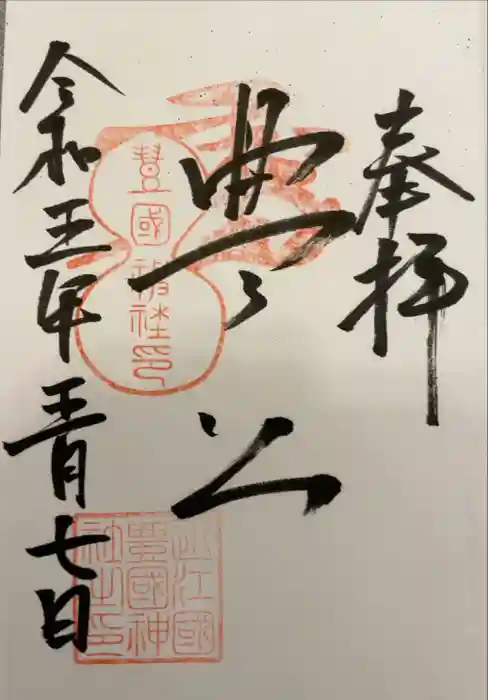 奉拝
豊公
令和五年五月七日
豊國神社印
近江國
豊國神
社之印